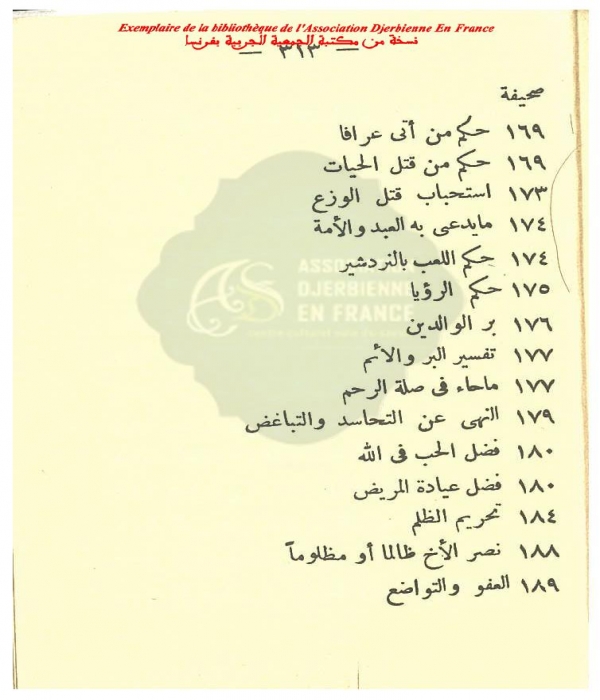 Exemplaire de la bibliothèque de l'Association Djerbienne En France
نسخة من مكتبة الجمعية الجربية بفرنسا
— ٣١٣ —
صحيفة
١٦٩ حكم من أتى عرافا
١٦٩ حكم من قتل الحيات
١٧٣ استحباب قتل الوزع
١٧٤ مايدعى به العبد والأمة
١٧٤ حكم اللعب بالنردشير
١٧٥ حكم الرؤيا
١٧٦ بر الوالدين
١٧٧ تفسير البر والأثم
١٧٧ ماحاء فى صلة الرحم
١٧٩ النهى عن التحاسد والتباغض
١٨٠ فضل الحب فى الله
١٨٠ فضل عيادة المريض
١٨٤ تحريم الظلم
١٨٨ نصر الأخ ظالما أو مظلوماً
١٨٩ العفو والتواضع
ASSOCIATION
DJERBIENNE
EN FRANCE